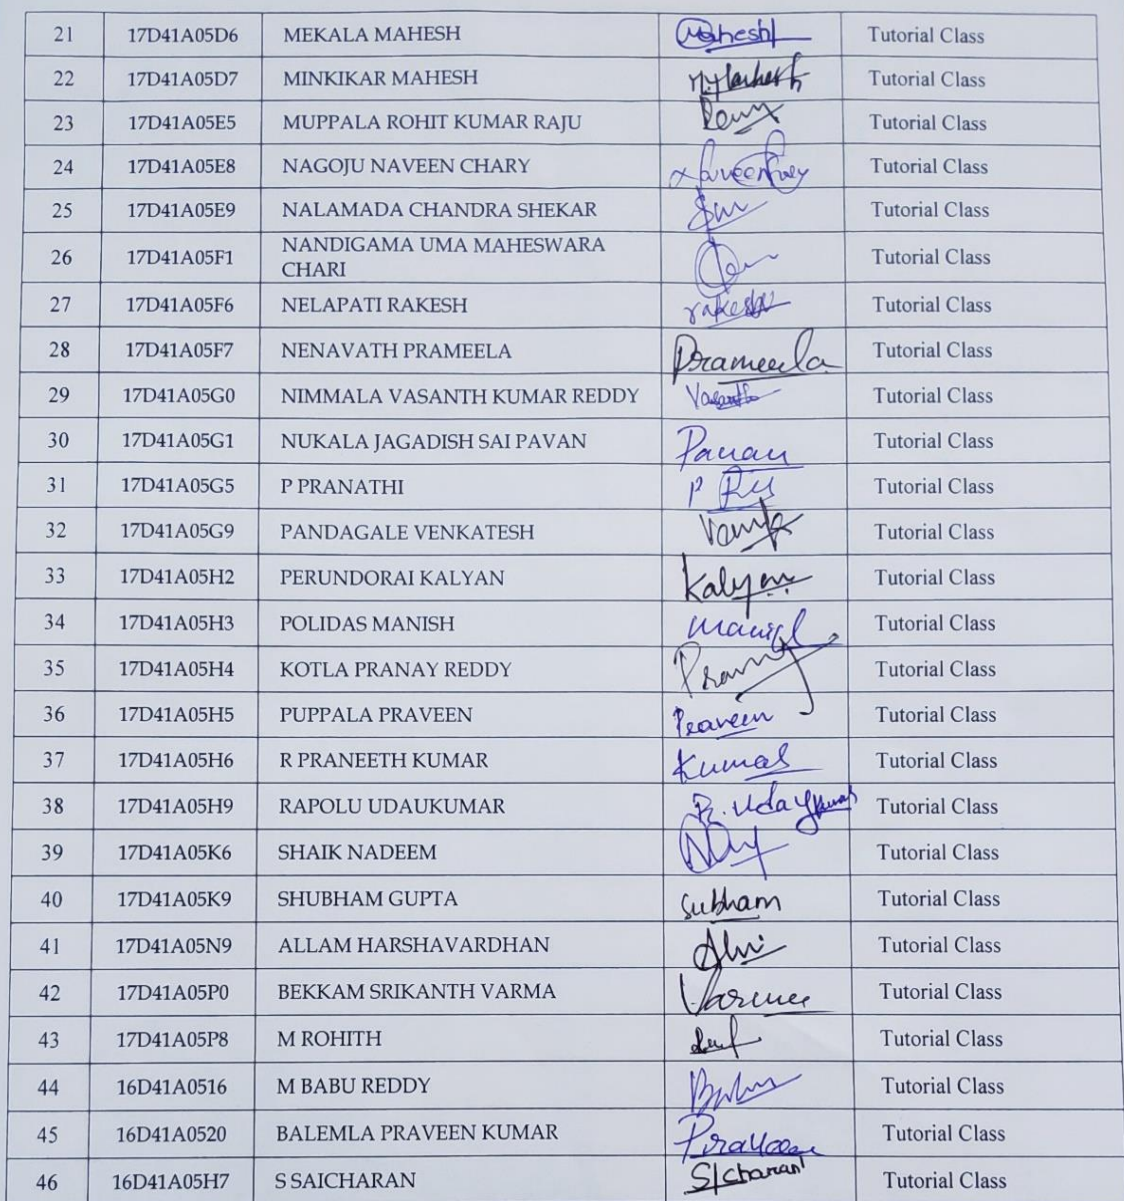 21 17D41A05D6 MEKALA MAHESH Mahesh Tutorial Class
22 17D41A05D7 MINKIKAR MAHESH Tutorial Class
23 17D41A05E5 MUPPALA ROHIT KUMAR RAJU Tutorial Class
24 17D41A05E8 NAGOJU NAVEEN CHARY Tutorial Class
25 17D41A05E9 NALAMADA CHANDRA SHEKAR Tutorial Class
26 17D41A05F1 NANDIGAMA UMA MAHESWARA Tutorial Class
CHARI
27 17D41A05F6 NELAPATI RAKESH rakesh Tutorial Class
28 17D41A05F7 NENAVATH PRAMEELA Prameela Tutorial Class
29 17D41A05G0 NIMMALA VASANTH KUMAR REDDY Vasanth Tutorial Class
30 17D41A05G1 NUKALA JAGADISH SAI PAVAN Pavan Tutorial Class
31 17D41A05G5 P PRANATHI Tutorial Class
32 17D41A05G9 PANDAGALE VENKATESH Tutorial Class
33 17D41A05H2 PERUNDORAI KALYAN Kalyan Tutorial Class
34 17D41A05H3 POLIDAS MANISH Tutorial Class
35 17D41A05H4 KOTLA PRANAY REDDY Tutorial Class
36 17D41A05H5 PUPPALA PRAVEEN Praveen Tutorial Class
37 17D41A05H6 R PRANEETH KUMAR Kumar Tutorial Class
38 17D41A05H9 RAPOLU UDAUKUMAR R. Uday Kumar Tutorial Class
39 17D41A05K6 SHAIK NADEEM Tutorial Class
40 17D41A05K9 SHUBHAM GUPTA Subham Tutorial Class
41 17D41A05N9 ALLAM HARSHAVARDHAN Tutorial Class
42 17D41A05P0 BEKKAM SRIKANTH VARMA Tutorial Class
43 17D41A05P8 M ROHITH Tutorial Class
44 16D41A0516 M BABU REDDY Tutorial Class
45 16D41A0520 BALEMLA PRAVEEN KUMAR Praveen Tutorial Class
46 16D41A05H7 S SAICHARAN S/charan Tutorial Class